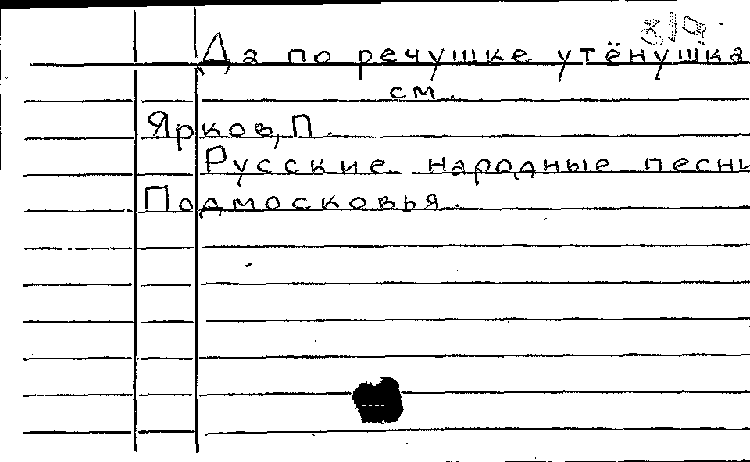 Да по речушке утёнушка
см.
Ярков, П.
Русские народные песни
Подмосковья.